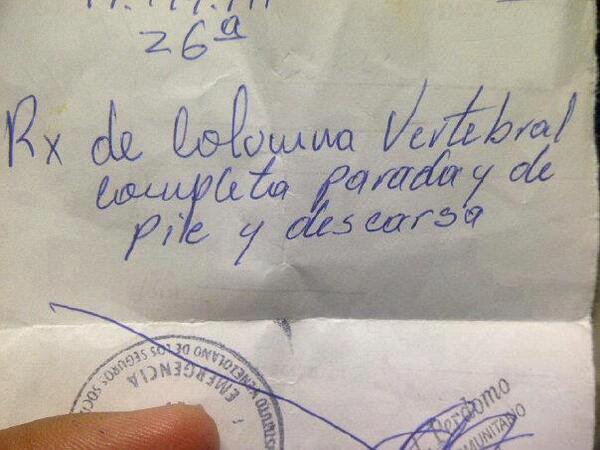 26ª
Rx de Columna Vertebral
completa parada y de
pie y descarsa
INSTITUTO VENEZOLANO DE LOS SEGUROS SOCI
EMERGENCIA
Perdomo
OMUNITARIO